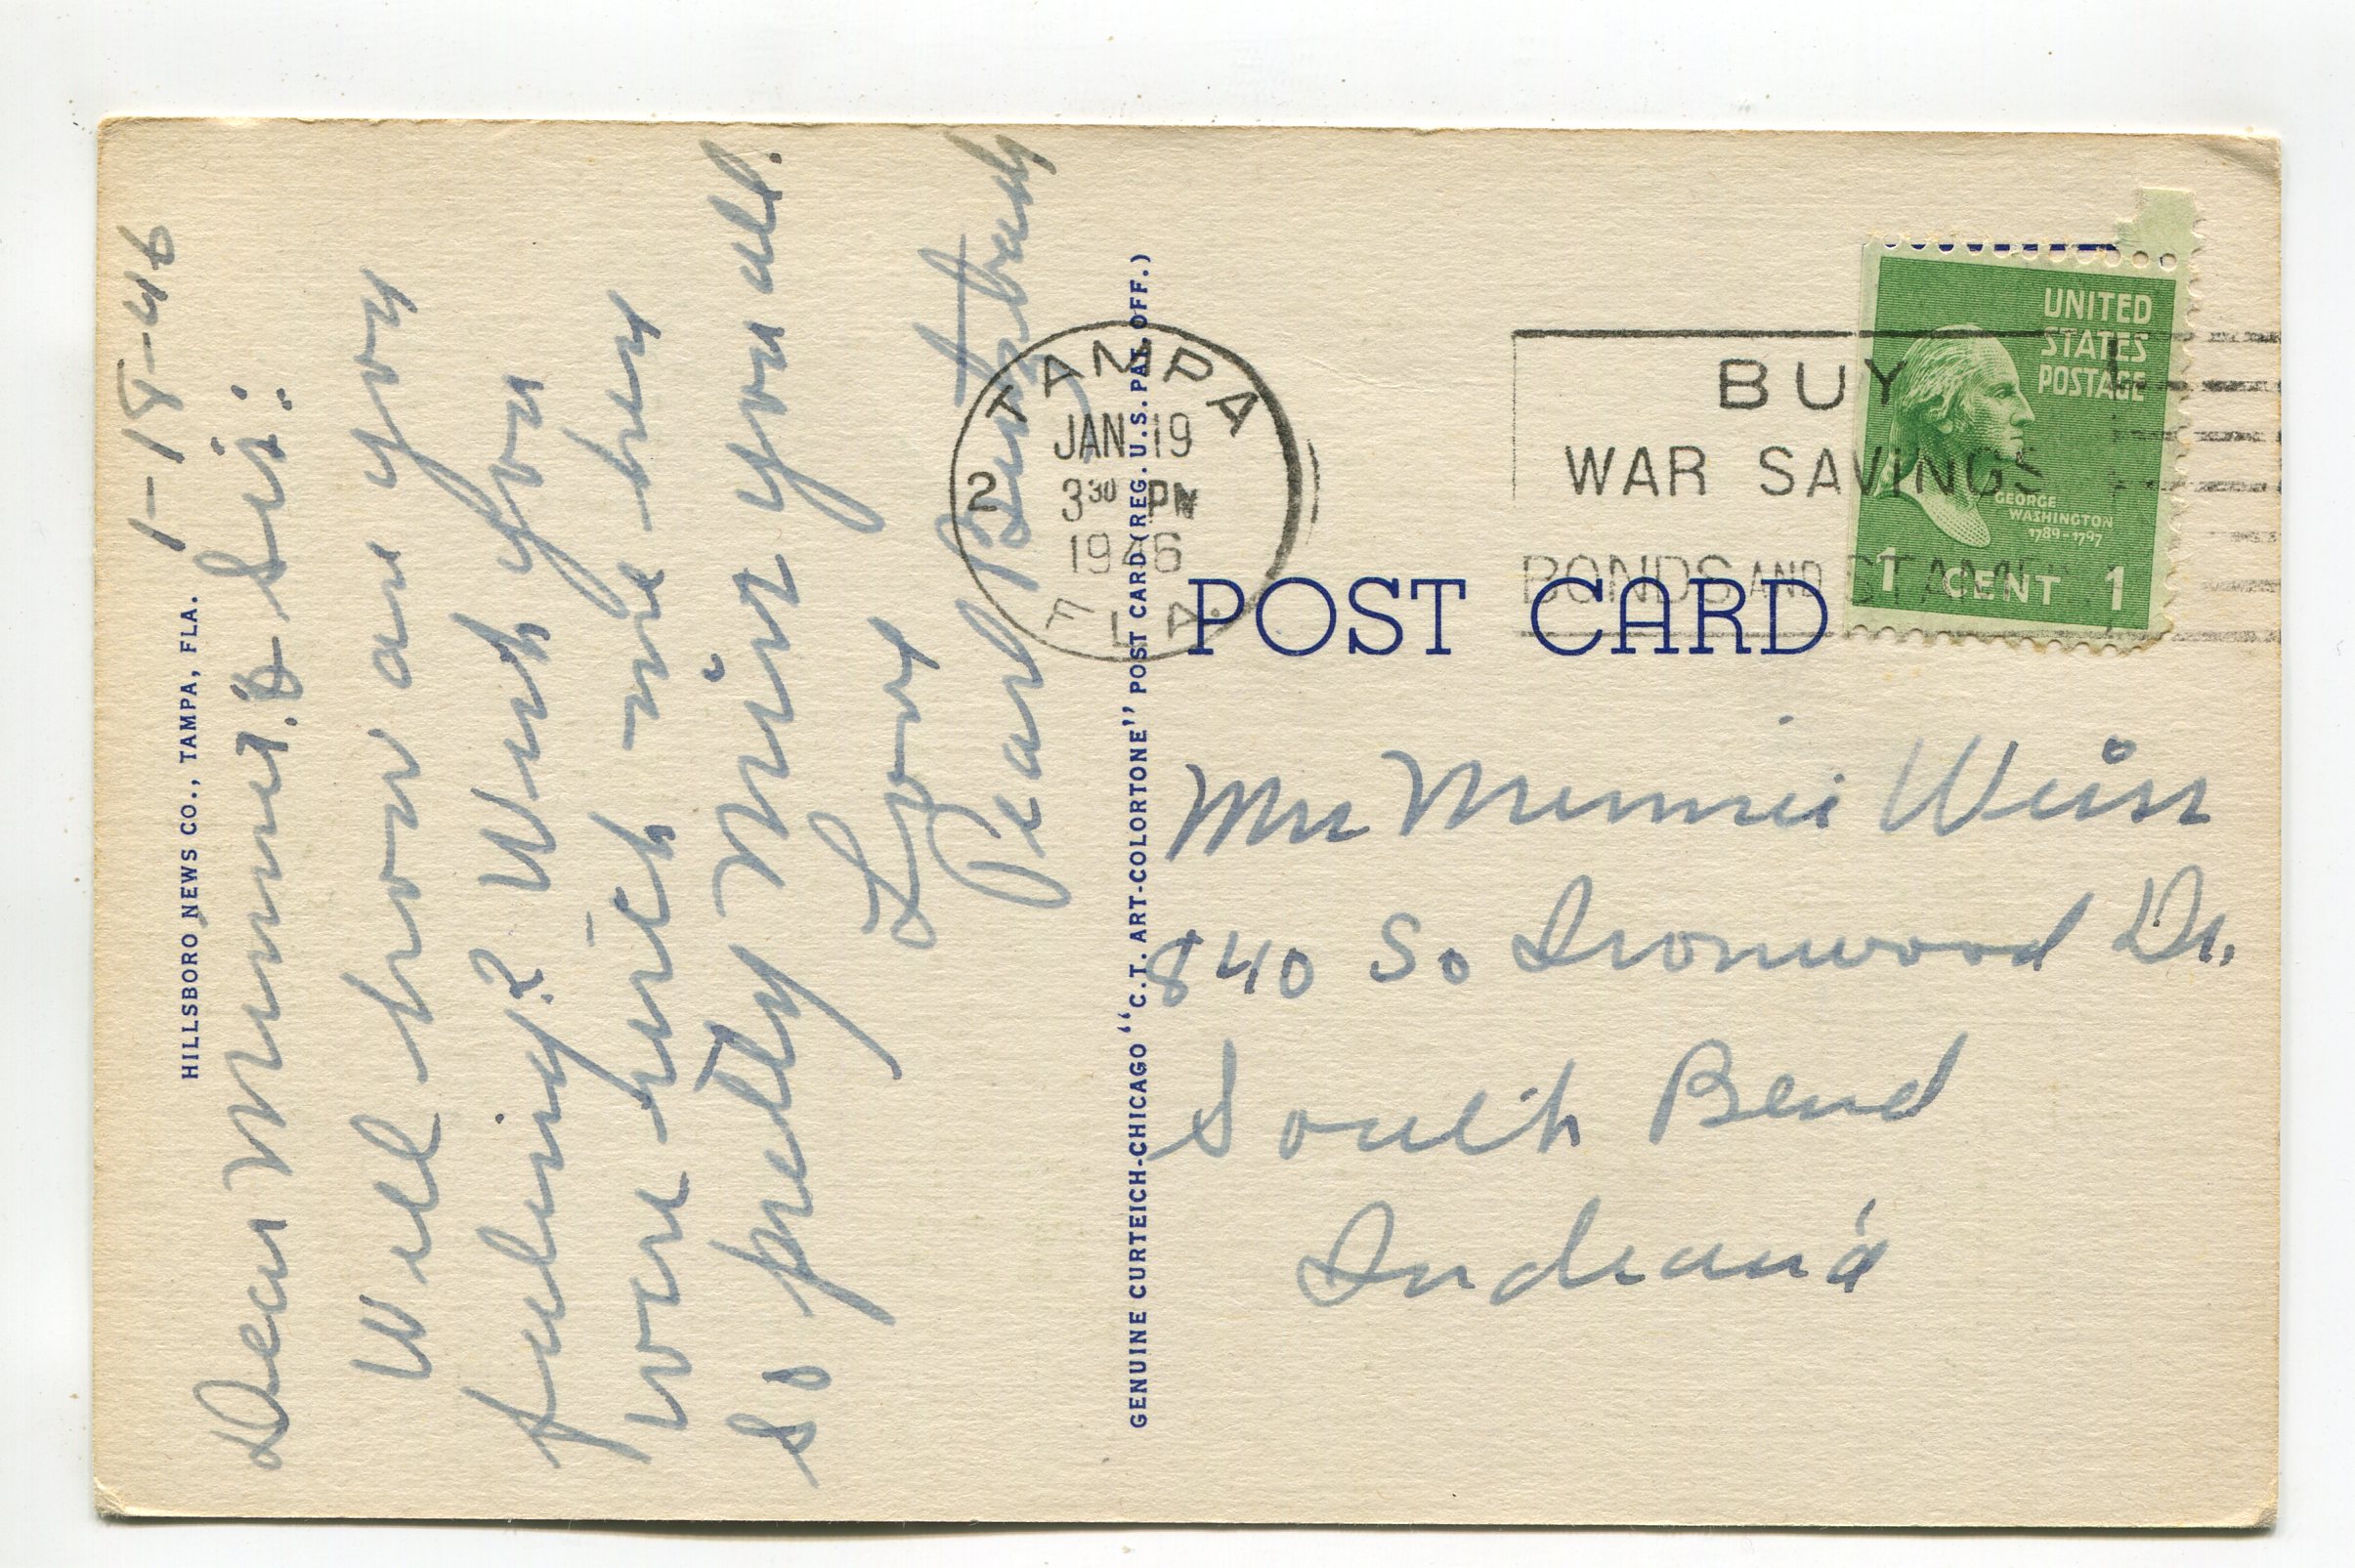 HILLSBORO NEWS CO., TAMPA, FLA.
1-18-46
Dear Minnie & Sis:
Well how are you
feeling? Wish you
were here with me. Very
so pretty Miss you all.
Love
Pearl
GENUINE CURTEICH-CHICAGO "C.T. ART-COLORTONE" POST CARD (REG. U.S. PAT. OFF.)
TAMPA
2
JAN 19
3 30 PM
1946
FLA.
BUY
WAR SAVINGS
BONDS AND STAMPS
UNITED
STATES
POSTAGE
GEORGE
WASHINGTON
1789-1797
1 CENT 1
POST CARD
Mrs Minnie Weiss
840 So Ironwood Dr.
South Bend
Indiana